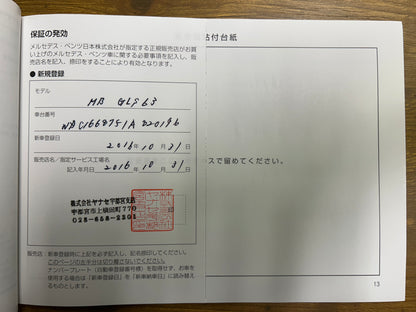 保証の発効
メルセデス・ベンツ日本株式会社が指定する正規販売店がお買
い上げのメルセデス・ベンツ車に関する必要事項を記入し、販
売店名を記入、捺印をすることにより有効となります。
● 新規登録
モデル
MB GLS63
車台番号
WDC1668751A820196
新車登録日 2016年10月31日
販売店名／指定サービス工場名
記入年月日 2016年10月31日
株式会社ヤナセ宇都宮支店
宇都宮市上横田町770
028-658-2301
印
販売店：新車登録時に上記を必ず記入し、記名捺印してください。
このページの左半分は切り離さないでください。
ナンバープレート（自動車登録番号標）を取得せず、お車を
使用する場合は「新車登録日」を「新車納車日」に読み替え
るものとします。
貼付台紙
スで留めてください。
13